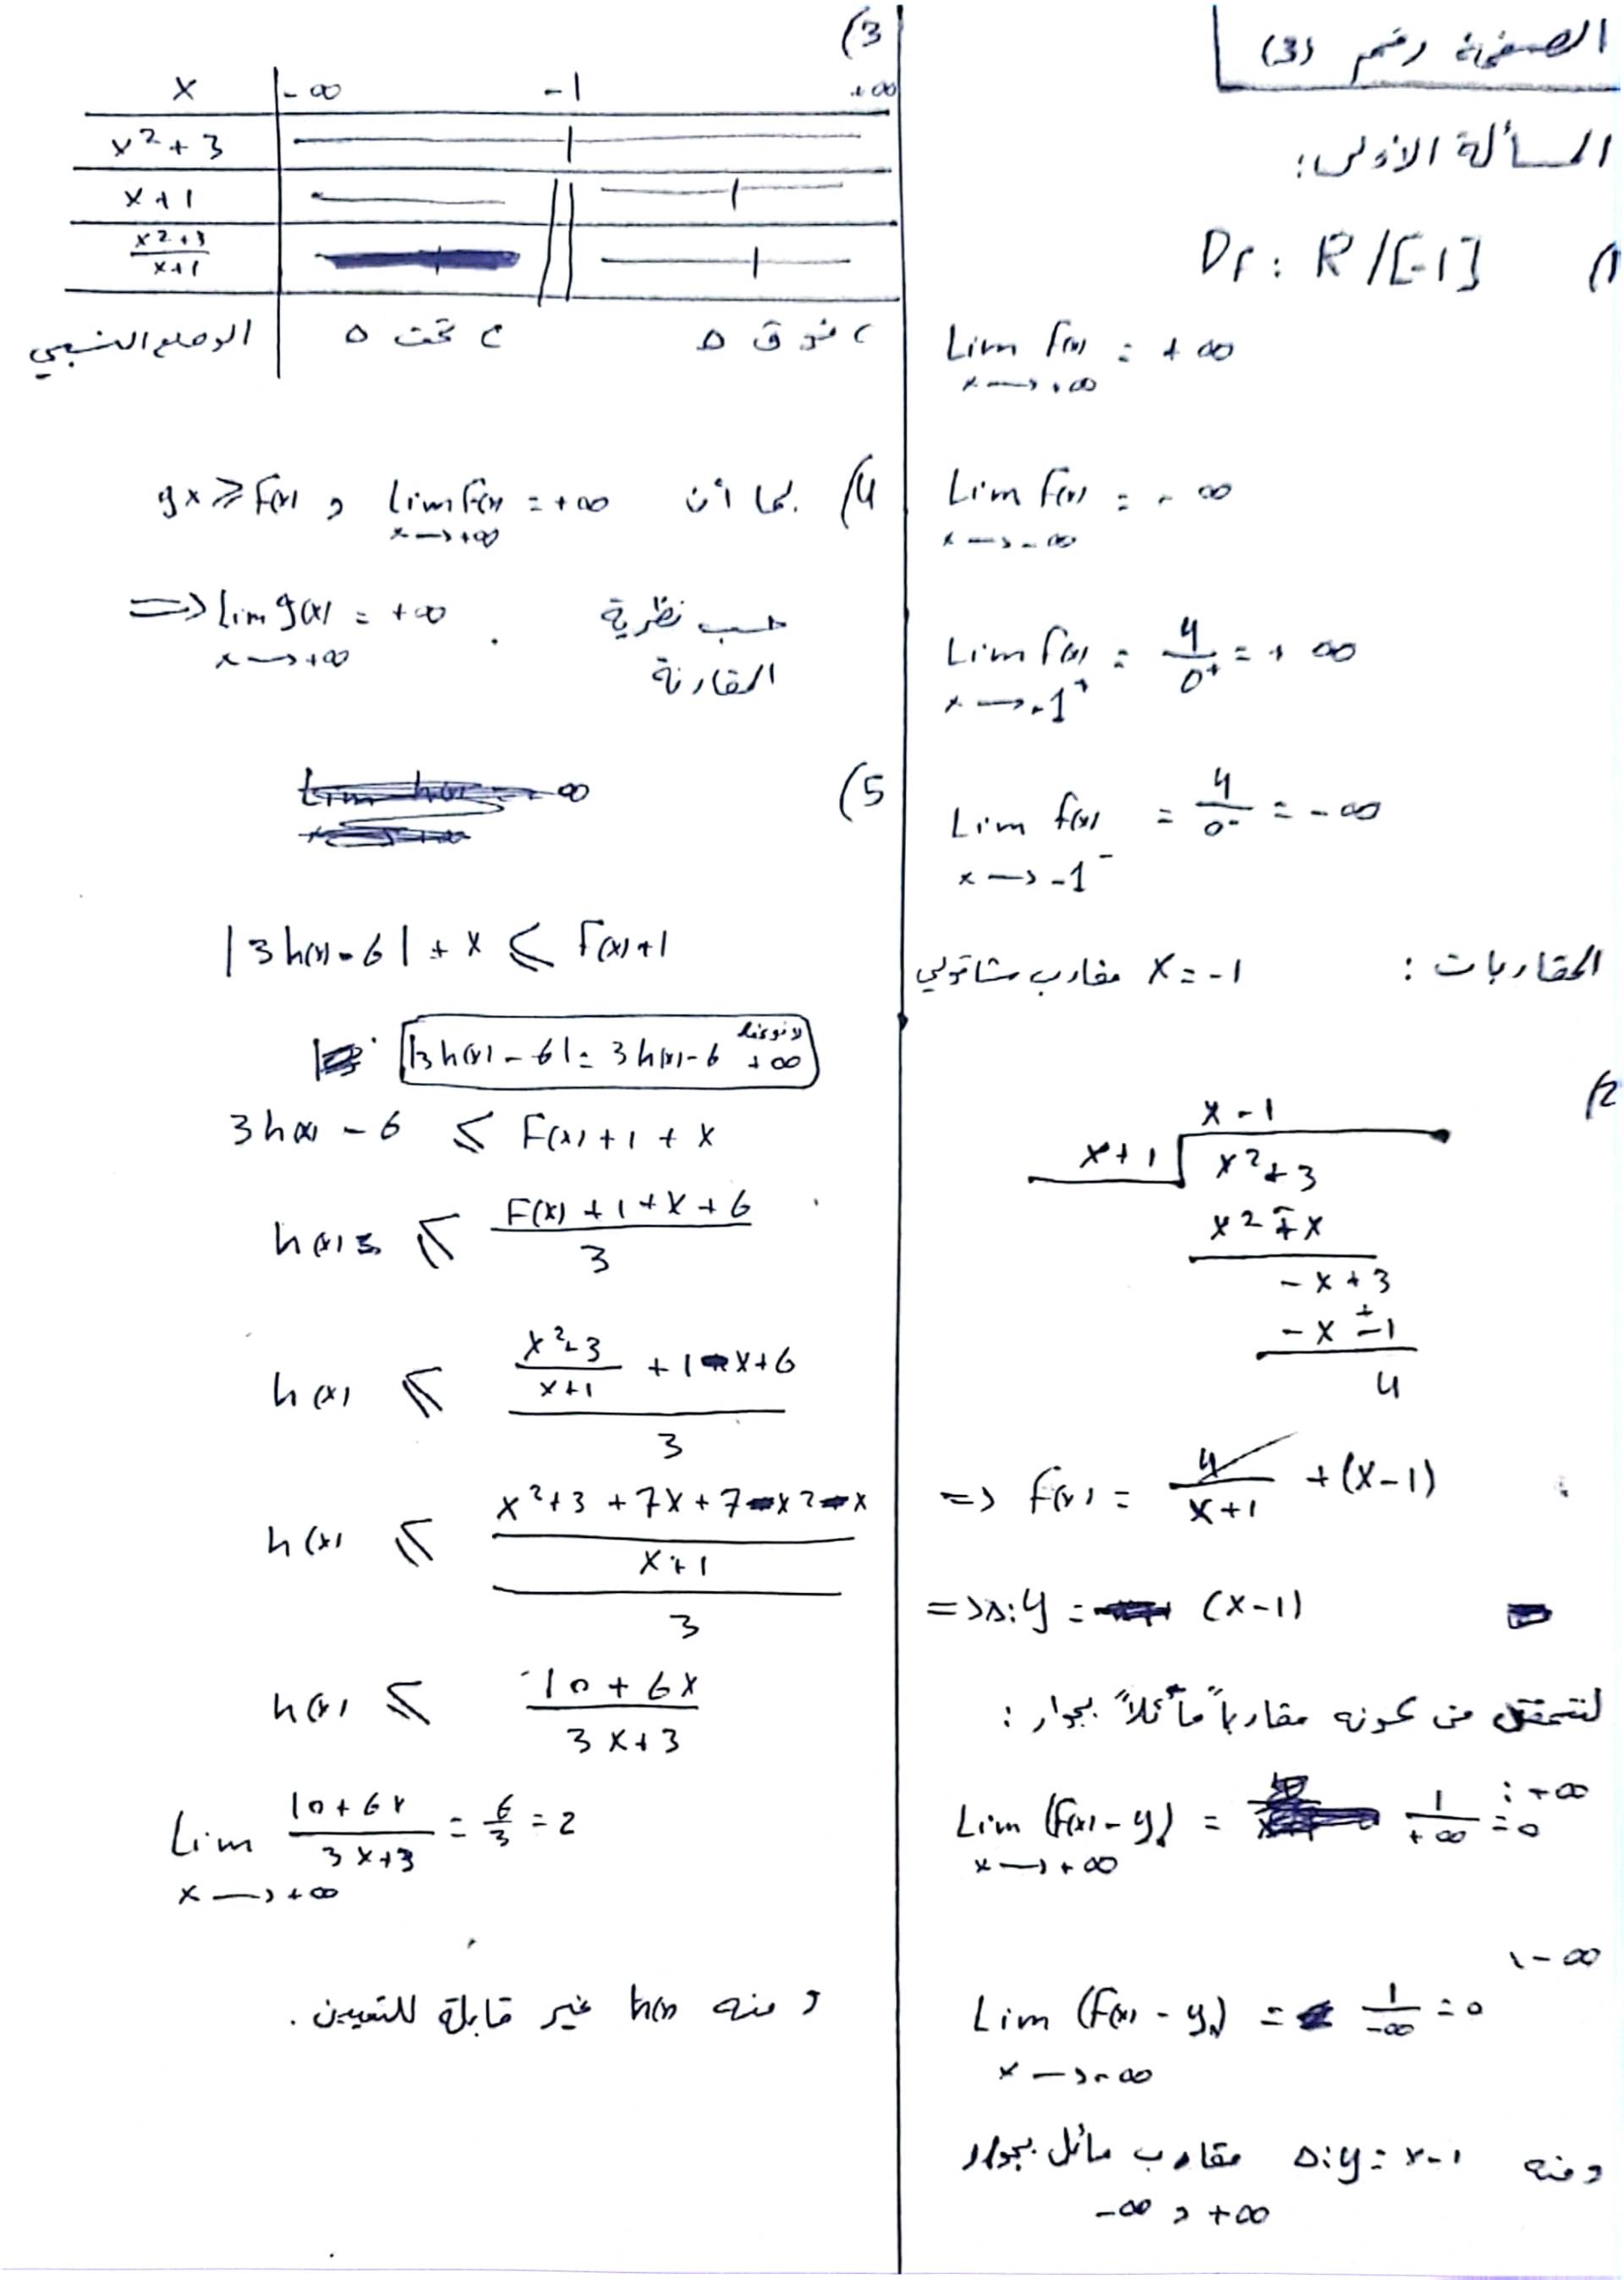 الصفحة رقم (3)
المسألة الأولى:
1) Df: R/[-1]
Lim f(x) = +∞
x→+∞
Lim f(x) = -∞
x→-∞
Lim f(x) = 4/0⁺ = +∞
x→-1⁺
Lim f(x) = 4/0⁻ = -∞
x→-1⁻
المقاربات : x = -1 مقارب شاقولي
2)
x - 1
x+1 x²+3
x² ∓ x
- x + 3
- x ± 1
4
=> f(x) = 4/(x+1) + (x-1)
=> Δ: y = (x-1)
لنتحقق من كونه مقارباً مائلاً بجوار :
+∞ :
Lim (f(x) - y) = 1/+∞ = 0
x→+∞
-∞
Lim (f(x) - y) = 1/-∞ = 0
x→-∞
ومنه Δ: y = x-1 مقارب مائل بجوار
+∞ و -∞
3)
x -∞ -1 +∞
x²+3
x+1 -
(x²+3)/(x+1)
الوضع النسبي C تحت Δ C فوق Δ
4) بما أن lim f(x) = +∞ و gx ≥ f(x)
x→+∞
حسب نظرية => Lim g(x) = +∞
المقارنة x→+∞
5)
|3h(x) - 6| + x ≤ f(x)+1
|3h(x) - 6| = 3h(x) - 6 +∞
3h(x) - 6 ≤ F(x) + 1 + x
h(x) ≤ (F(x) + 1 + x + 6)/3
h(x) ≤ ((x²+3)/(x+1) + 1 - x + 6)/3
h(x) ≤ ((x²+3 + 7x + 7 - x² - x)/(x+1))/3
h(x) ≤ (10 + 6x)/(3x+3)
Lim (10+6x)/(3x+3) = 6/3 = 2
x→+∞
ومنه h(x) غير قابلة للتعيين .